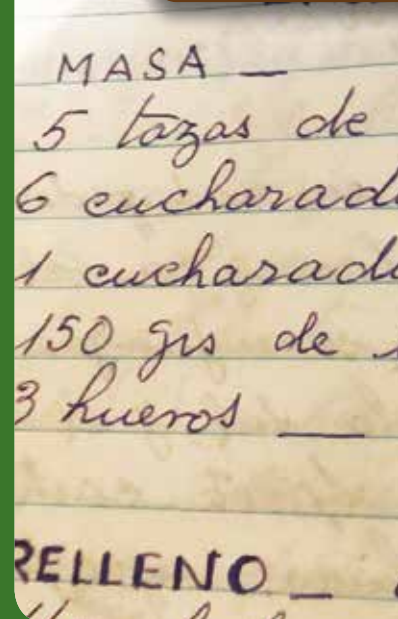 MASA —
5 tazas de
6 cucharad
1 cucharad
150 grs de
3 huevos —
RELLENO —